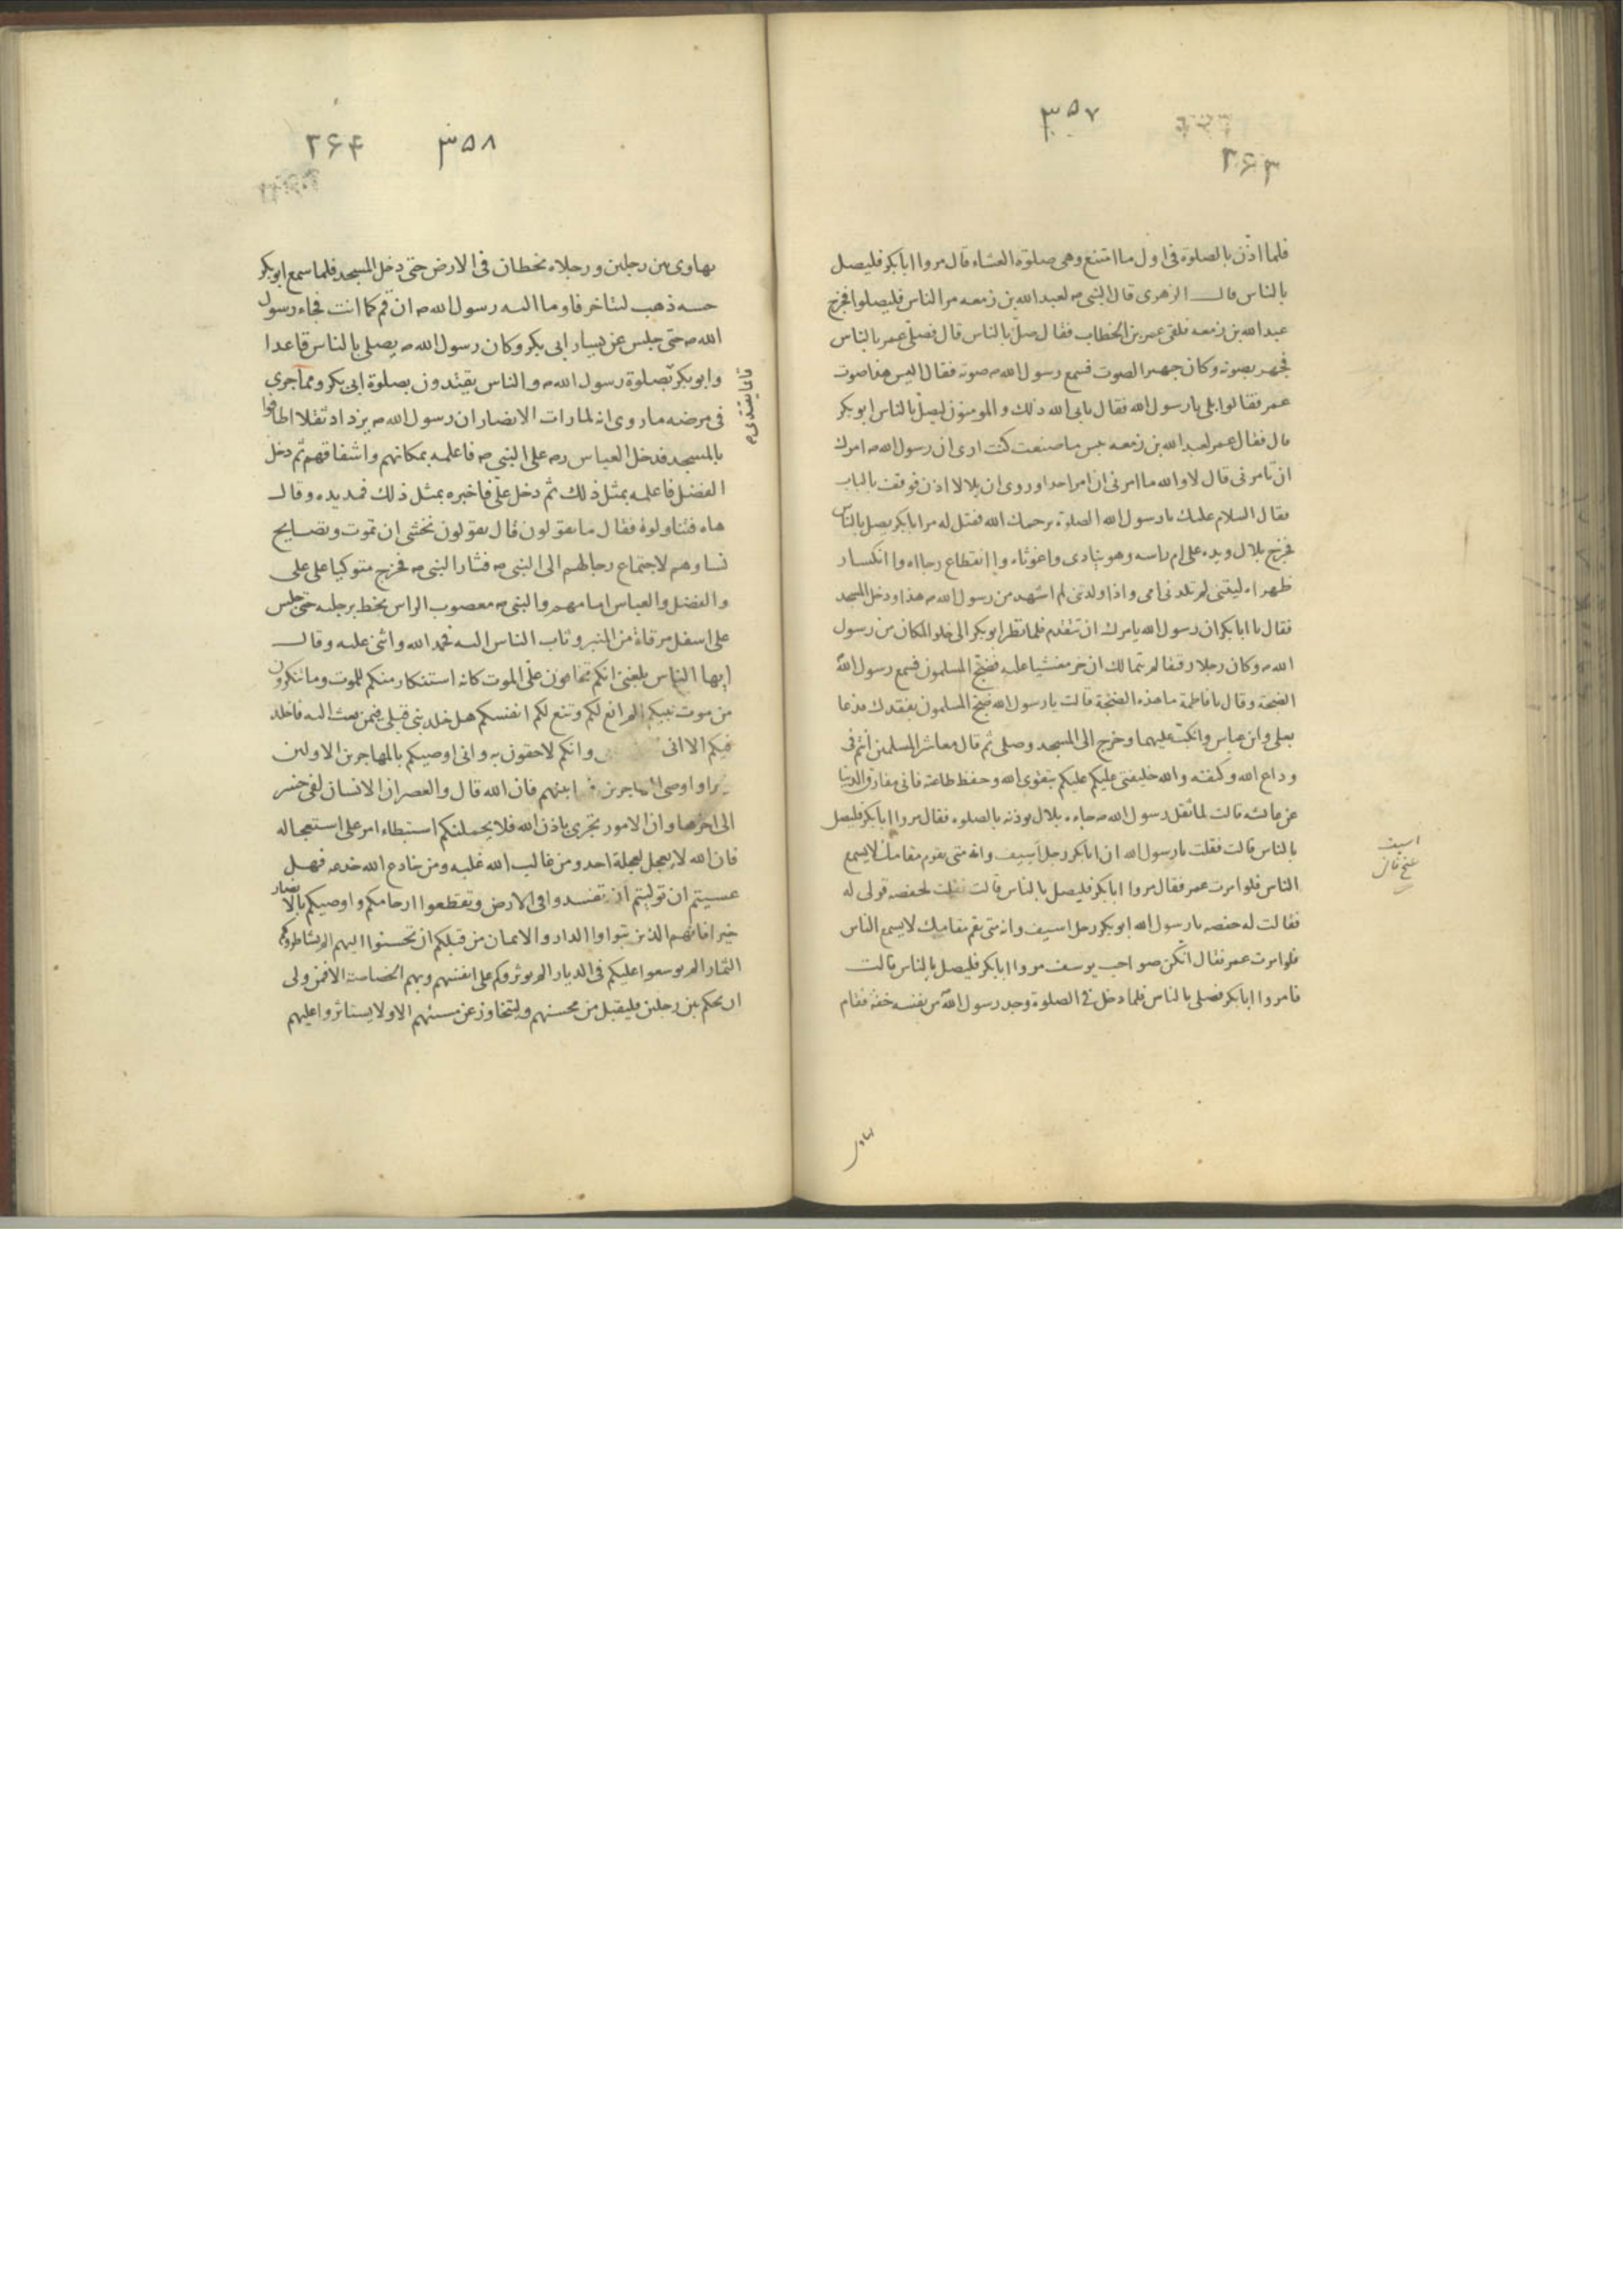 ۳۵۷
۲۶۳
فلما اذن بالصلوة فى اول ما امتنع وهى صلوة العشاء قال مروا ابابكر فليصل
بالناس قال الزهرى قال النبى ص لعبد الله بن زمعه مر الناس فليصلوا فخرج
عبد الله بن زمعه فلقى عمر بن الخطاب فقال صل بالناس قال فصلى عمر بالناس
فجهر بصوته وكان جهير الصوت فسمع رسول الله ص صوته فقال اليس هذا صوت
عمر فقالوا بلى يا رسول الله فقال يابى الله ذلك و المومنون ليصل بالناس ابو بكر
قال فقال عمر لعبد الله بن زمعه بئس ما صنعت كنت ارى ان رسول الله ص امرك
ان تامرنى قال لا والله ما امرنى ان امر احدا وروى ان بلالا اذن فوقف بالباب
فقال السلام عليك يا رسول الله الصلوة يرحمك الله فقيل له مر ابابكر يصل بالناس
فخرج بلال ويده على ام راسه وهو ينادى واغوثاه وا انقطاع رجااه وا انكسار
ظهراه ليتنى لم تلدنى امى واذا ولدتنى لم اشهد من رسول الله ص هذا ودخل المسجد
فقال يا ابابكر ان رسول الله يامرك ان تتقدم فلما نظر ابو بكر الى خلو المكان من رسول
الله ص وكان رجلا رقيقا لم يتمالك ان خر مغشيا عليه فضج المسلمون فسمع رسول الله
الضجة وقال يا فاطمة ما هذه الضجة قالت يا رسول الله ضج المسلمون بفقدك فدعا
بعلى وابن عباس واتكى عليهما وخرج الى المسجد وصلى ثم قال معاشر المسلمين انتم فى
وداع الله وكنفه والله خليفتى عليكم عليكم بتقوى الله وحفظ طاعته فانى مفارق الدنيا
عن عائشه قالت لما ثقل رسول الله ص جاءه بلال يوذنه بالصلوه فقال مروا ابابكر فليصل
بالناس قالت فقلت يا رسول الله ان ابابكر رجل اسيف وانه متى يقوم مقامك لا يسمع
الناس فلو امرت عمر فقال مروا ابابكر فليصل بالناس قالت فقلت لحفصه قولى له
فقالت له حفصه يا رسول الله ابو بكر رجل اسيف وانه متى يقم مقامك لا يسمع الناس
فلو امرت عمر فقال انكن صواحب يوسف مروا ابابكر فليصل بالناس قالت
فامروا ابابكر فصلى بالناس فلما دخل فى الصلوة وجد رسول الله من نفسه خفة فقام
اسيف
۳۵۸
۲۶۴
يهاوى بين رجلين ورجلاه تخطان فى الارض حتى دخل المسجد فلما سمع ابو بكر
حسه ذهب ليتاخر فاوما اليه رسول الله ص ان قم كما انت فجاء رسول
الله ص حتى جلس عن يسار ابى بكر وكان رسول الله ص يصلى بالناس قاعدا
وابو بكر بصلوة رسول الله ص والناس يقتدون بصلوة ابى بكر ومما جرى
فى مرضه ما روى انه لما رات الانصار ان رسول الله ص يزداد ثقلا اطافوا
بالمسجد فدخل العباس رض على النبى ص فاعلمه بمكانهم واشفاقهم ثم دخل
الفضل فاعلمه بمثل ذلك ثم دخل على فاخبره بمثل ذلك فمد يده وقال
هاه فتناولوه فقال ما يقولون قال يقولون نخشى ان تموت وتصايح
نساوهم لاجتماع رجالهم الى النبى ص فثار النبى ص فخرج متوكيا على على
والفضل والعباس امامهم والنبى ص معصوب الراس يخط برجليه حتى جلس
على اسفل مرقاة من المنبر وثاب الناس اليه فحمد الله واثنى عليه وقال
ايها الناس بلغنى انكم تخافون على الموت كانه استنكار منكم للموت وما تنكرون
من موت نبيكم الم انع لكم وتنع لكم انفسكم هل خلد نبى قبلى فيمن بعث اليه فاخلد
فيكم الا انى وانكم لاحقون به وانى اوصيكم بالمهاجرين الاولين
خيرا واوصى المهاجرين فيما بينهم فان الله قال والعصر ان الانسان لفى خسر
الى اخرها وان الامور تجرى باذن الله فلا يحملنكم استبطاء امر على استعجاله
فان الله لا يعجل لعجلة احد ومن غالب الله غلبه ومن خادع الله خدعه فهل
عسيتم ان توليتم ان تفسدوا فى الارض وتقطعوا ارحامكم واوصيكم بالانصار
خيرا فانهم الذين تبواوا الدار والايمان من قبلكم ان تحسنوا اليهم الم يشاطروكم
الثمار الم يوسعوا عليكم فى الديار الم يوثروكم على انفسهم وبهم الخصاصة الا فمن ولى
ان يحكم بين رجلين فليقبل من محسنهم وليتجاوز عن مسيئهم الا ولا يستاثروا عليهم